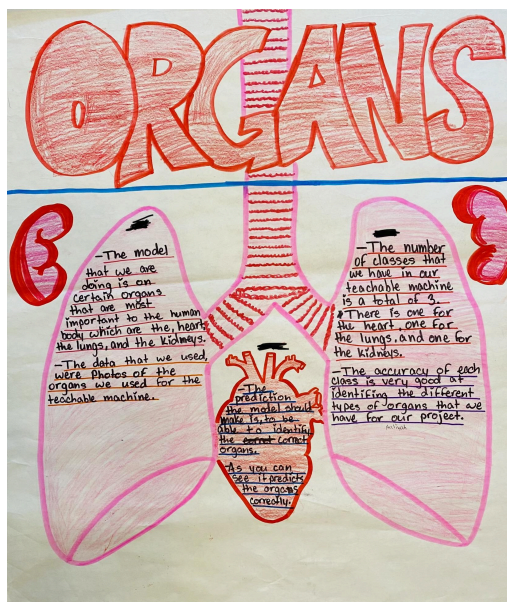 ORGANS
-The model
that we are
doing is on
certain organs
that are most
important to the human
body which are the, heart,
the lungs, and the kidneys.
-The data that we used,
were photos of the
organs we used for the
teachable machine.
-The
prediction
the model should
make is, to be
able to identify
the correct
organs.
As you can
see it predicts
the organs
correctly.
-The number
of classes that
we have in our
teachable machine
is a total of 3.
*There is one for
the heart, one for
the lungs, and one for
the kidneys.
-The accuracy of each
class is very good at
identifying the different
types of organs that we
have for our project.